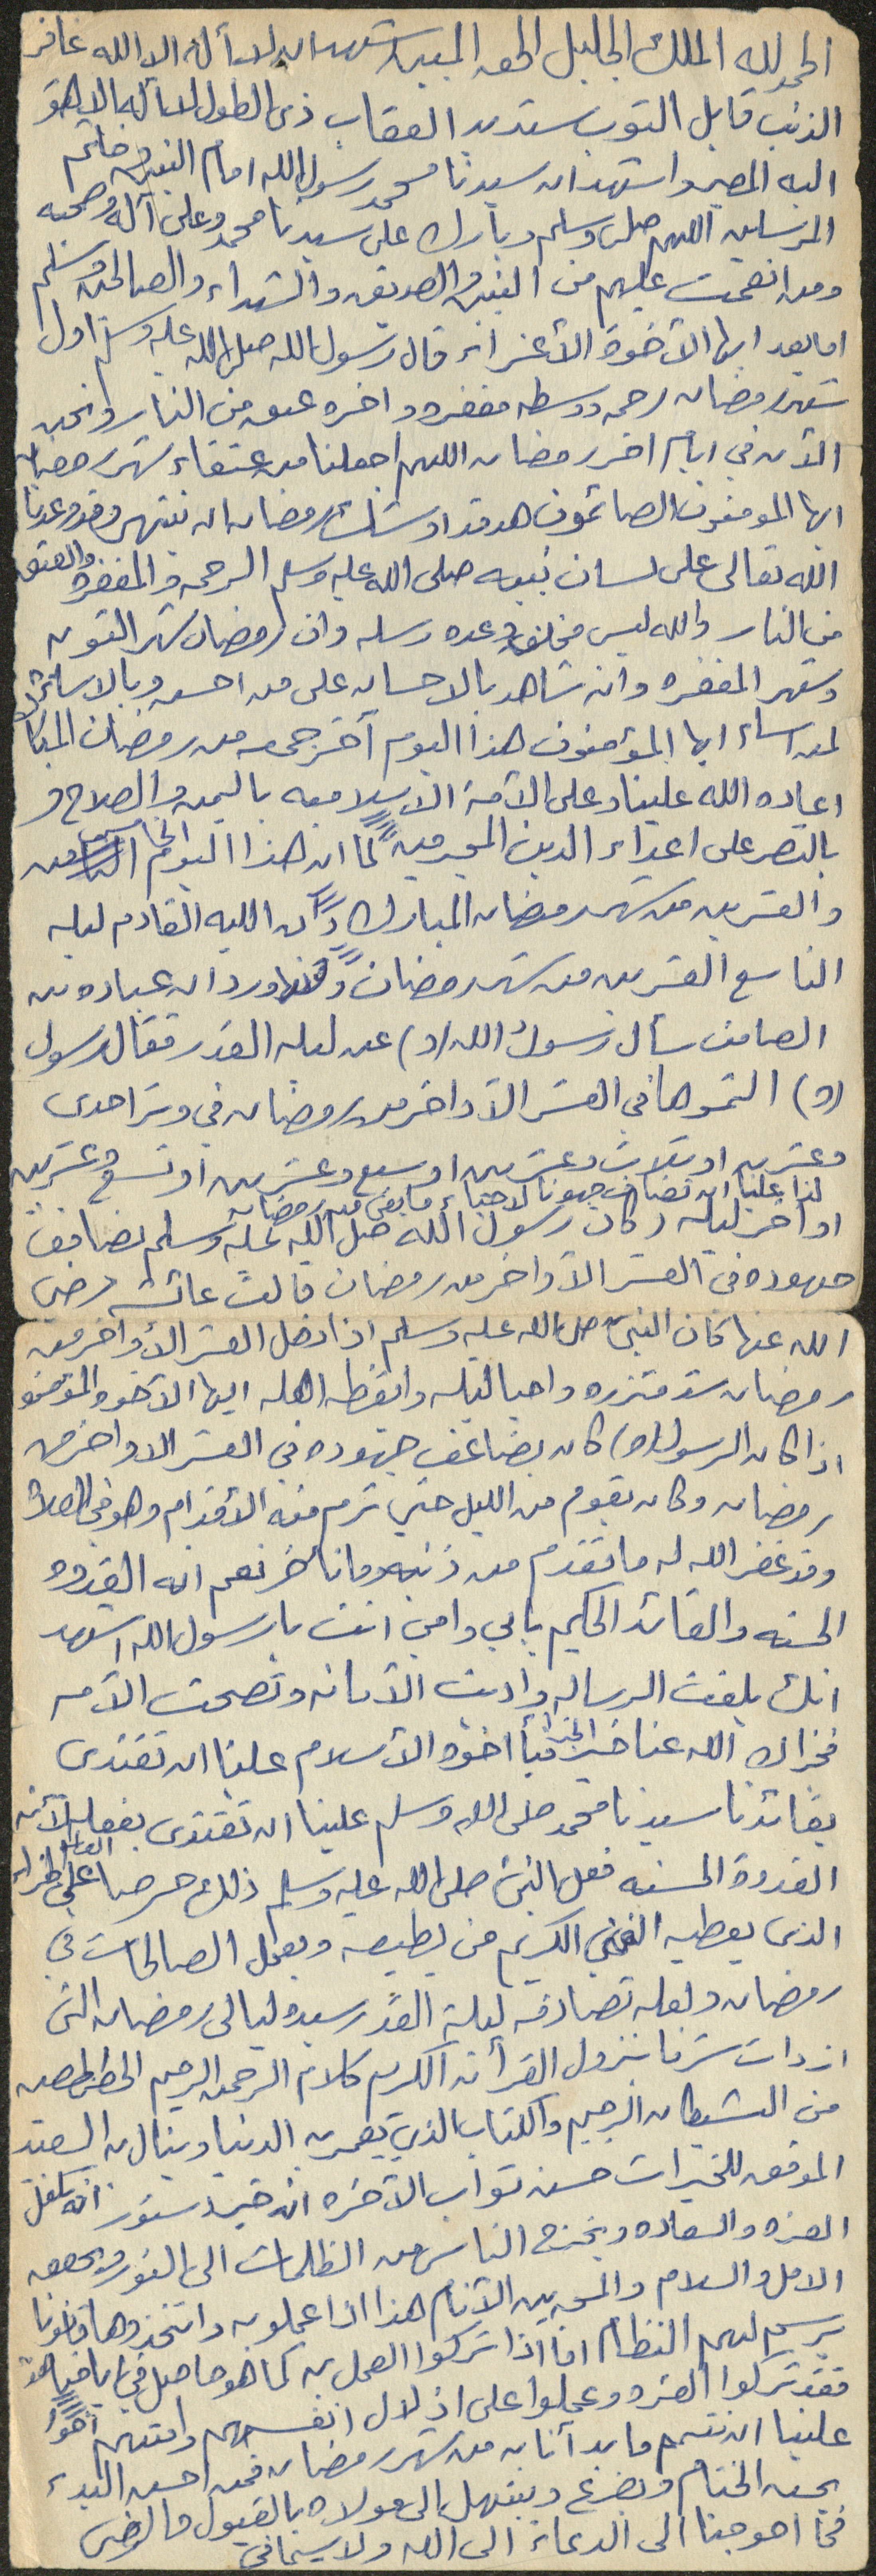 الحمد لله الملك الجليل الحق المبين اشهد ان لا اله الا الله غافر
الذنب قابل التوب شديد العقاب ذي الطول لا اله الا هو
اليه المصير واشهد ان سيدنا محمد رسول الله امام النبيين وخاتم
المرسلين اللهم صلى وسلم وبارك على سيدنا محمد وعلى آله وصحبه
ومن انعمت عليهم من النبيين والصديقين والشهداء والصالحين وسلم
اما بعد ايها الأخوة الأعزاء قال رسول الله صلى الله عليه وسلم اول
شهر رمضان رحمه ووسطه مغفره واخره عتق من النار ونحن
الأن في ايام اخر رمضان اللهم اجعلنا من عتقاء شهر رمضان
ايها المومنون الصائمون قد اوشك رمضان ان ينتهي وقد وعدنا
الله تعالى على لسان نبيه صلى الله عليه وسلم الرحمه والمغفره والعتق
من النار والله ليس مخلف وعده رسله وان رمضان شهر التوبه
وشهر المغفره وأنه شاهد بالاحسان على من احسن وبالاساءة
لمن اساء ايها المؤمنون هذا اليوم آخر جمعه من رمضان المبارك
اعاده الله علينا وعلى الأمة الاسلاميه باليمن والصلاح و
بالنصر على اعداء الدين المجرمين كما ان هذا اليوم الخامس
والعشرين من شهر رمضان المبارك وكان الليله القادم ليله
التاسع العشرين من شهر رمضان ورد ان عباده بن
الصامت سأل رسول الله (ص) عن ليله القدر فقال رسول
(ص) التمسوها في العشر الأواخر من رمضان في وتر احدى
وعشرين او ثلاث وعشرين او سبع وعشرين او تسع وعشرين
لذا علينا ان نضاعف جهودنا لاحياء ما بقي من رمضان
او اخر ليله وكان رسول الله صلى الله عليه وسلم يضاعف
جهوده في العشر الأواخر من رمضان قالت عائشه رضي
الله عنها كان النبي صلى الله عليه وسلم اذا دخل العشر الأواخر من
رمضان شد مئزره واحيا ليله وايقظ اهله ايها الأخوه المؤمنو
اذا كان الرسول (ص) كان يضاعف جهوده في العشر الاواخر من
رمضان وكان يقوم من الليل حتى ترم منه الأقدام وهو في الصلاة
وقد غفر الله له ما تقدم من ذنبه وما تأخر نعم انه القدوه
الحسنه والقائد الحكيم بابي وامي انت يا رسول الله اشهد
انك بلغت الرساله واديت الأمانه ونصحت الأمه
فجزاك الله عنا خير الجزاء فيا اخوة الأسلام علينا ان نقتدى
بقائدنا سيدنا محمد صلى الله وسلم علينا ان نقتدى بفعله لأنه
القدوة الحسنه فعل النبي صلى الله عليه وسلم ذلك حرصا على الجزاء
الذى يعطيه الغني الكريم من يطيعه ويعمل الصالحات في
رمضان ولعله تصادفه ليلة القدر سيده ليالى رمضان التي
ازدات شرفا بنزول القرأن الكريم كلام الرحمن الرحيم الحصن
من الشيطان الرجيم والكتاب الذي يعمر به الدنيا وينال به العبد
الموفق للخيرات حسن ثواب الآخره انه خير دستور انه يكفل
العزه والسعاده ويخرج الناس من الظلمات الى النور ويحقق
الامل والسلام والمحبه بين الأنام هذا اذا عملو به واتخذوها قانونا
يرسم لهم النظام اما اذا تركوا العمل به كما هو حاصل في ايامنا هذه
فقد تركوا العزه وعملوا على اذلال انفسهم وامتهم
علينا ان نتمم ما بدأنا به من شهر رمضان فمن احسن البدء
يحسن الختام ونضرع ونبتهل الى مولاه بالقبول والرضى
فما احوجنا الى الدعاء الى الله ولا سيما في